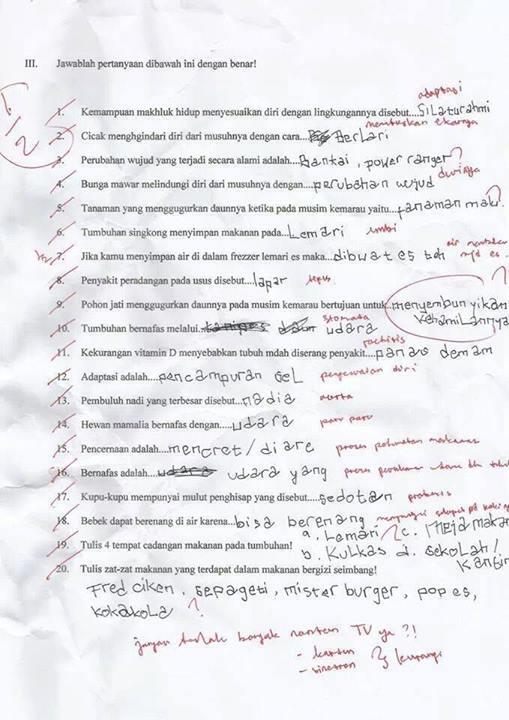 III. Jawablah pertanyaan dibawah ini dengan benar!
adaptasi
1. Kemampuan makhluk hidup menyesuaikan diri dengan lingkungannya disebut....Silaturahmi
memutuskan ekornya
2. Cicak menghgindari diri dari musuhnya dengan cara... Berlari
3. Perubahan wujud yang terjadi secara alami adalah....Bantai, power ranger ?
durinya
4. Bunga mawar melindungi diri dari musuhnya dengan....perubahan wujud
5. Tanaman yang menggugurkan daunnya ketika pada musim kemarau yaitu....tanaman mati. ?
6. Tumbuhan singkong menyimpan makanan pada....Lemari umbi
air membeku mjd es
7. Jika kamu menyimpan air di dalam frezzer lemari es maka...dibwat es teh
8. Penyakit peradangan pada usus disebut....lapar tipus
9. Pohon jati menggugurkan daunnya pada musim kemarau bertujuan untuk..menyembunyikan kehamilannya ?
stomata
10. Tumbuhan bernafas melalui... udara
rachitis
11. Kekurangan vitamin D menyebabkan tubuh mdah diserang penyakit....panas demam
12. Adaptasi adalah....pencampuran GeL penyesuaian diri
13. Pembuluh nadi yang terbesar disebut...nadia aorta
14. Hewan mamalia bernafas dengan.....udara paru paru
15. Pencernaan adalah....mencret/diare proses pelumatan makanan
16. Bernafas adalah... udara yang proses
17. Kupu-kupu mempunyai mulut penghisap yang disebut.....sedotan probosis
18. Bebek dapat berenang di air karena...bisa berenang mempunyai selaput pd kaki
19. Tulis 4 tempat cadangan makanan pada tumbuhan! a. Lemari c. Meja makan
b. Kulkas d. sekolah/
kantin
20. Tulis zat-zat makanan yang terdapat dalam makanan bergizi seimbang!
Fred ciken, sepageti, mister burger, pop es,
kokakola ?
jangan terlalu banyak nonton TV ya ?!
- kartun
- sinetron } kurangi